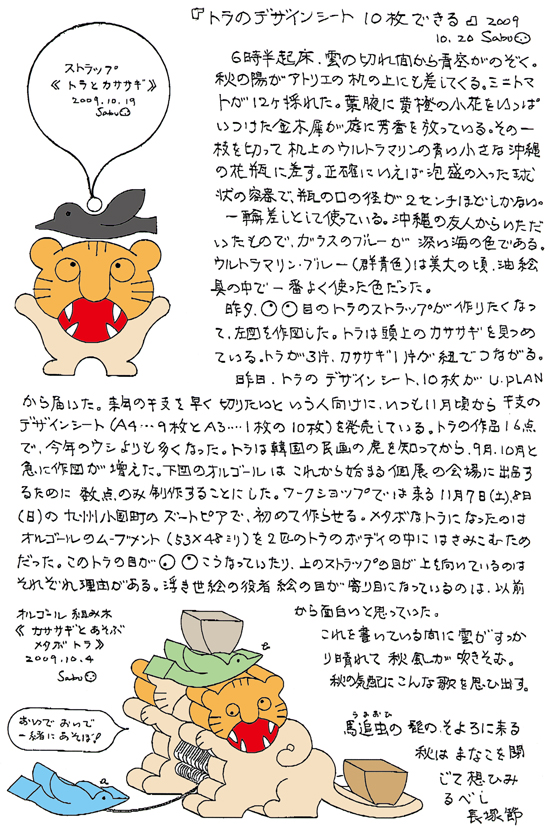 『トラのデザインシート 10枚できる』2009
10.20 Sabu
ストラップ
《トラとカササギ》
2009.10.19
Sabu
6時半起床.雲の切れ間から青空がのぞく。
秋の陽がアトリエの机の上にも差してくる。ミニトマ
トが12ヶ採れた。葉腋に黄橙の小花をいっぱ
いつけた金木犀が庭に芳香を放っている。その一
枝を切って机上のウルトラマリンの青い小さな沖縄
の花瓶に差す。正確にいえば泡盛の入った球
状の容器で、瓶の口の径が2センチほどしかない。
一輪差しとして使っている。沖縄の友人からいただ
いたもので、ガラスのブルーが深い海の色である。
ウルトラマリン・ブルー(群青色)は美大の頃、油絵
具の中で一番よく使った色だった。
昨夕、○○目のトラのストラップが作りたくなっ
て、左図を作図した。トラは頭上のカササギを見つめ
ている。トラが3片、カササギ1片が紐でつながる。
昨日、トラのデザインシート、10枚がU.PLAN
から届いた。来年の干支を早く切りたいという人向けに、いつも11月頃から干支の
デザインシート(A4…9枚とA3…1枚の10枚)を発売している。トラの作品16点
で、今年のウシよりも多くなった。トラは韓国の民画の虎を知ってから、9月、10月と
急に作図が増えた。下図のオルゴールはこれから始まる個展の会場に出品す
るために数点のみ制作することにした。ワークショップでは来る11月7日(土)、8日
(日)の九州小国町のズートピアで、初めて作らせる。メタボなトラになったのは
オルゴールのムーブメント(53×48ミリ)を2匹のトラのボディの中にはさみこむため
だった。このトラの目が○○こうなっていたり、上のストラップの目が上を向いているのは
それぞれ理由がある。浮き世絵の役者絵の目が寄り目になっているのは、以前
から面白いと思っていた。
これを書いている間に雲がすっか
り晴れて秋風が吹きそむ。
秋の気配にこんな歌を思ひ出す。
うまおひ
馬追虫の髭のそよろに来る
秋はまなこを閉
じて想ひみ
るべし
長塚節
オルゴール組み木
《カササギとあそぶ
メタボトラ》
2009.10.4
Sabu
おいでおいで
一緒にあそぼ!
a
b